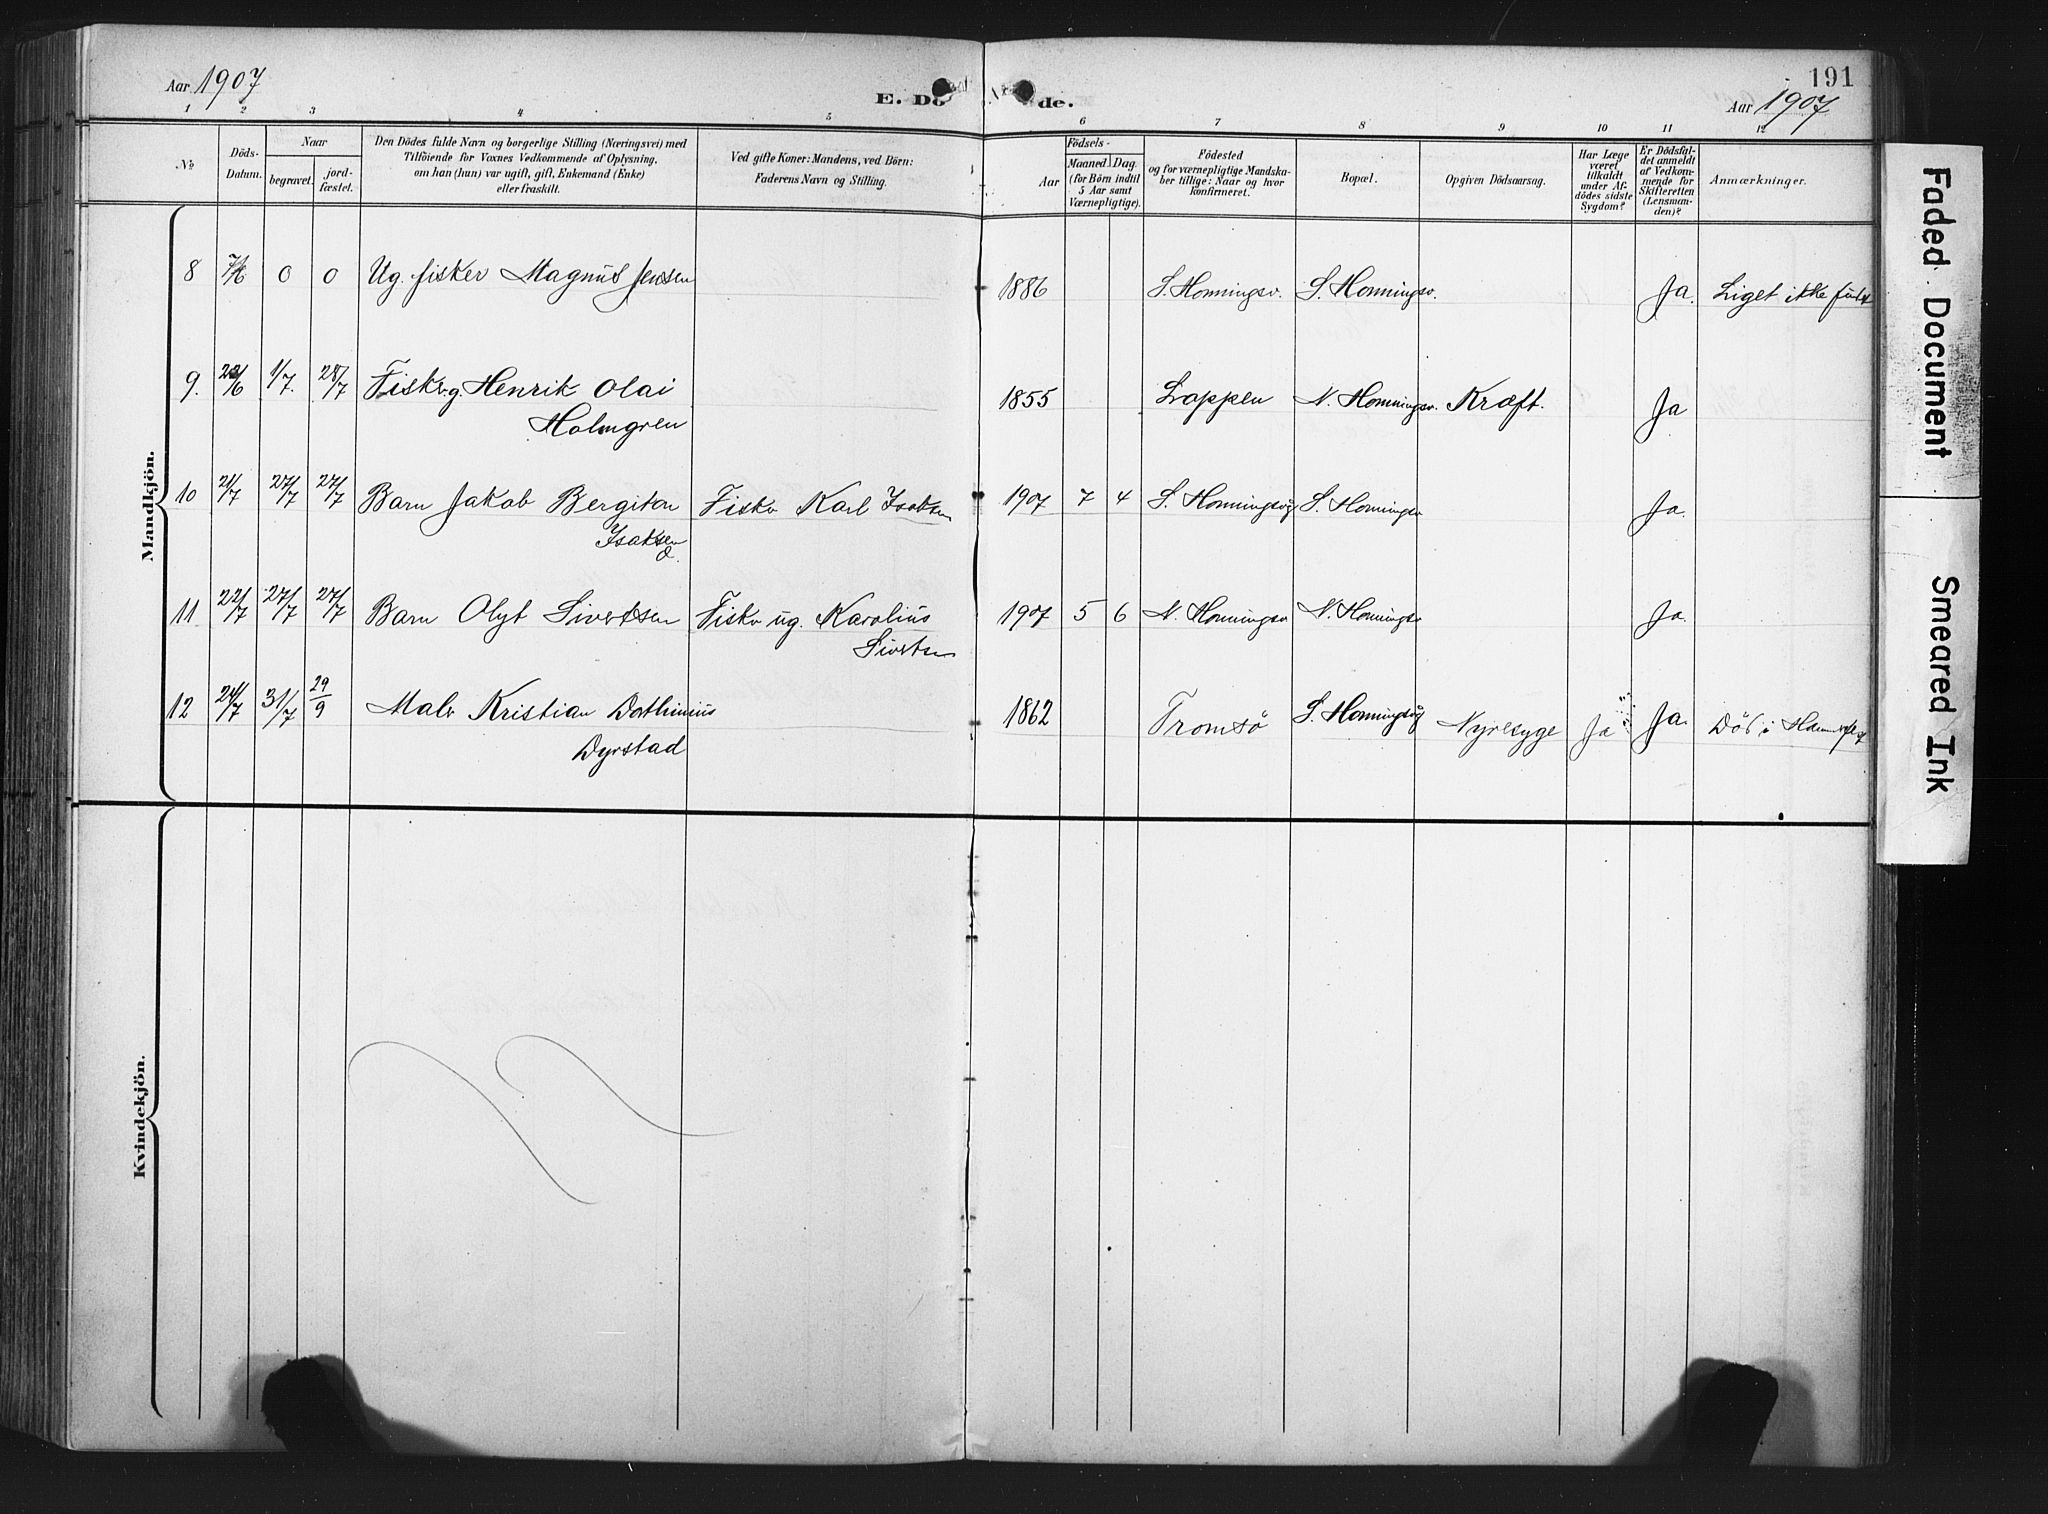 Aar 1907
E. Dö de.
191
Aar 1907
1 2 3 4 5 6 7 8 9 10 11 12
No
Döds-
Datum.
Naar
begravet.
jord-
fæstet.
Den Dödes fulde Navn og borgerlige Stilling (Næringsvei) med
Tilföiende for Voxnes Vedkommende af Oplysning,
om han (hun) var ugift, gift, Enkemand (Enke)
eller fraskilt.
Ved gifte Koner: Mandens, ved Börn:
Faderens Navn og Stilling.
Födsels-
Aar
Maaned. Dag.
(for Börn indtil
5 Aar samt
Værnepligtige).
Födested
og for værnepligtige Mandska-
ber tillige: Naar og hvor
konfirmeret.
Bopæl.
Opgiven Dödsaarsag.
Har Læge
været
tilkaldt
under Af-
dödes sidste
Sygdom?
Er Dödsfal-
det anmeldt
af Vedkom-
mende for
Skifteretten
(Lensman-
den)?
Anmærkninger.
Mandkjön.
8 7/6 0 0 Ug. fisker Magnus Jensen 1886 S. Honningsv. S. Honningsv. Ja. Liget ikke fundet
9. 23/6 1/7. 28/7 Fisker g. Henrik Olai 1855 Loppen N. Honningsv. Kræft. Ja
Holmgren
10 21/7 27/7 27/7 Barn Jakob Bergiton Fisker Karl Isaksen 1907 7 4 S. Honningsvåg S. Honningsv Ja.
Isaksen
11 22/7 27/7 27/7 Barn Olyt Sivertsen Fisker ug. Karolius 1907 5 6 N. Honningsv N. Honningsv Ja.
Sivertsen
12 24/7 31/7 29/9 Maler Kristian Dorthinius 1862 Tromsö S. Honningsvåg Nyresyge Ja Ja. Död i Hammerfest
Dyrstad
Kvindekjön.
Faded Document
Smeared Ink